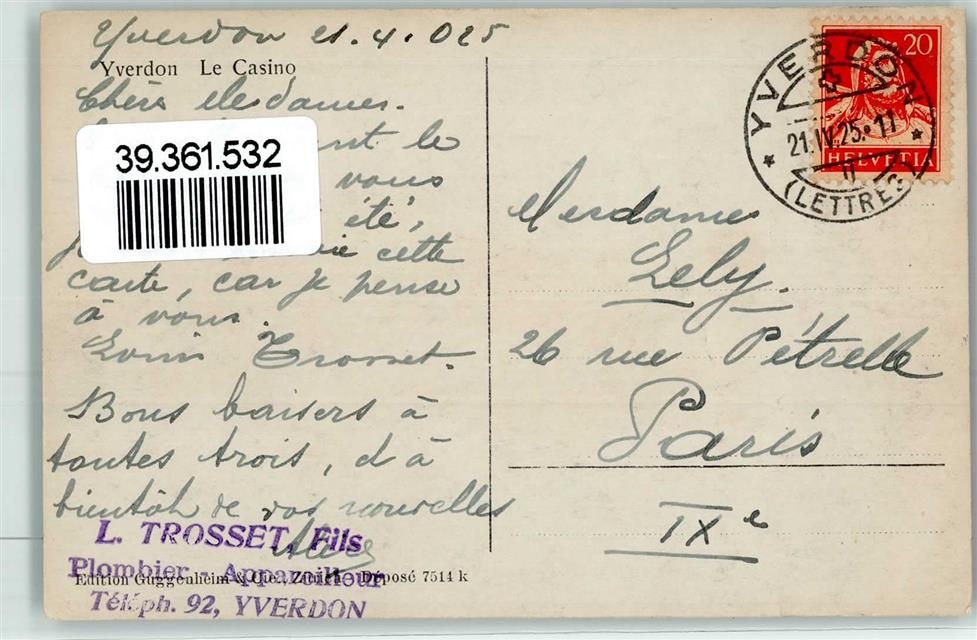 Yverdon 21.4.025
Yverdon Le Casino
Chères Mesdames.
le
39.361.532
vous
été,
cette
carte, car je pense
à vous.
Louis Trosset.
Bons baisers à
toutes trois, d à
bientôt de vos nouvelles
L. TROSSET, Fils
Plombier - Appareilleur
Edition Guggenheim & Cie., Zürich Déposé 7514 k
Téléph. 92, YVERDON
20
HELVETIA
YVERDON
21.IV.25.-11
(LETTRES)
Mesdames
Lely.
26 rue Pétrelle
Paris
IXe